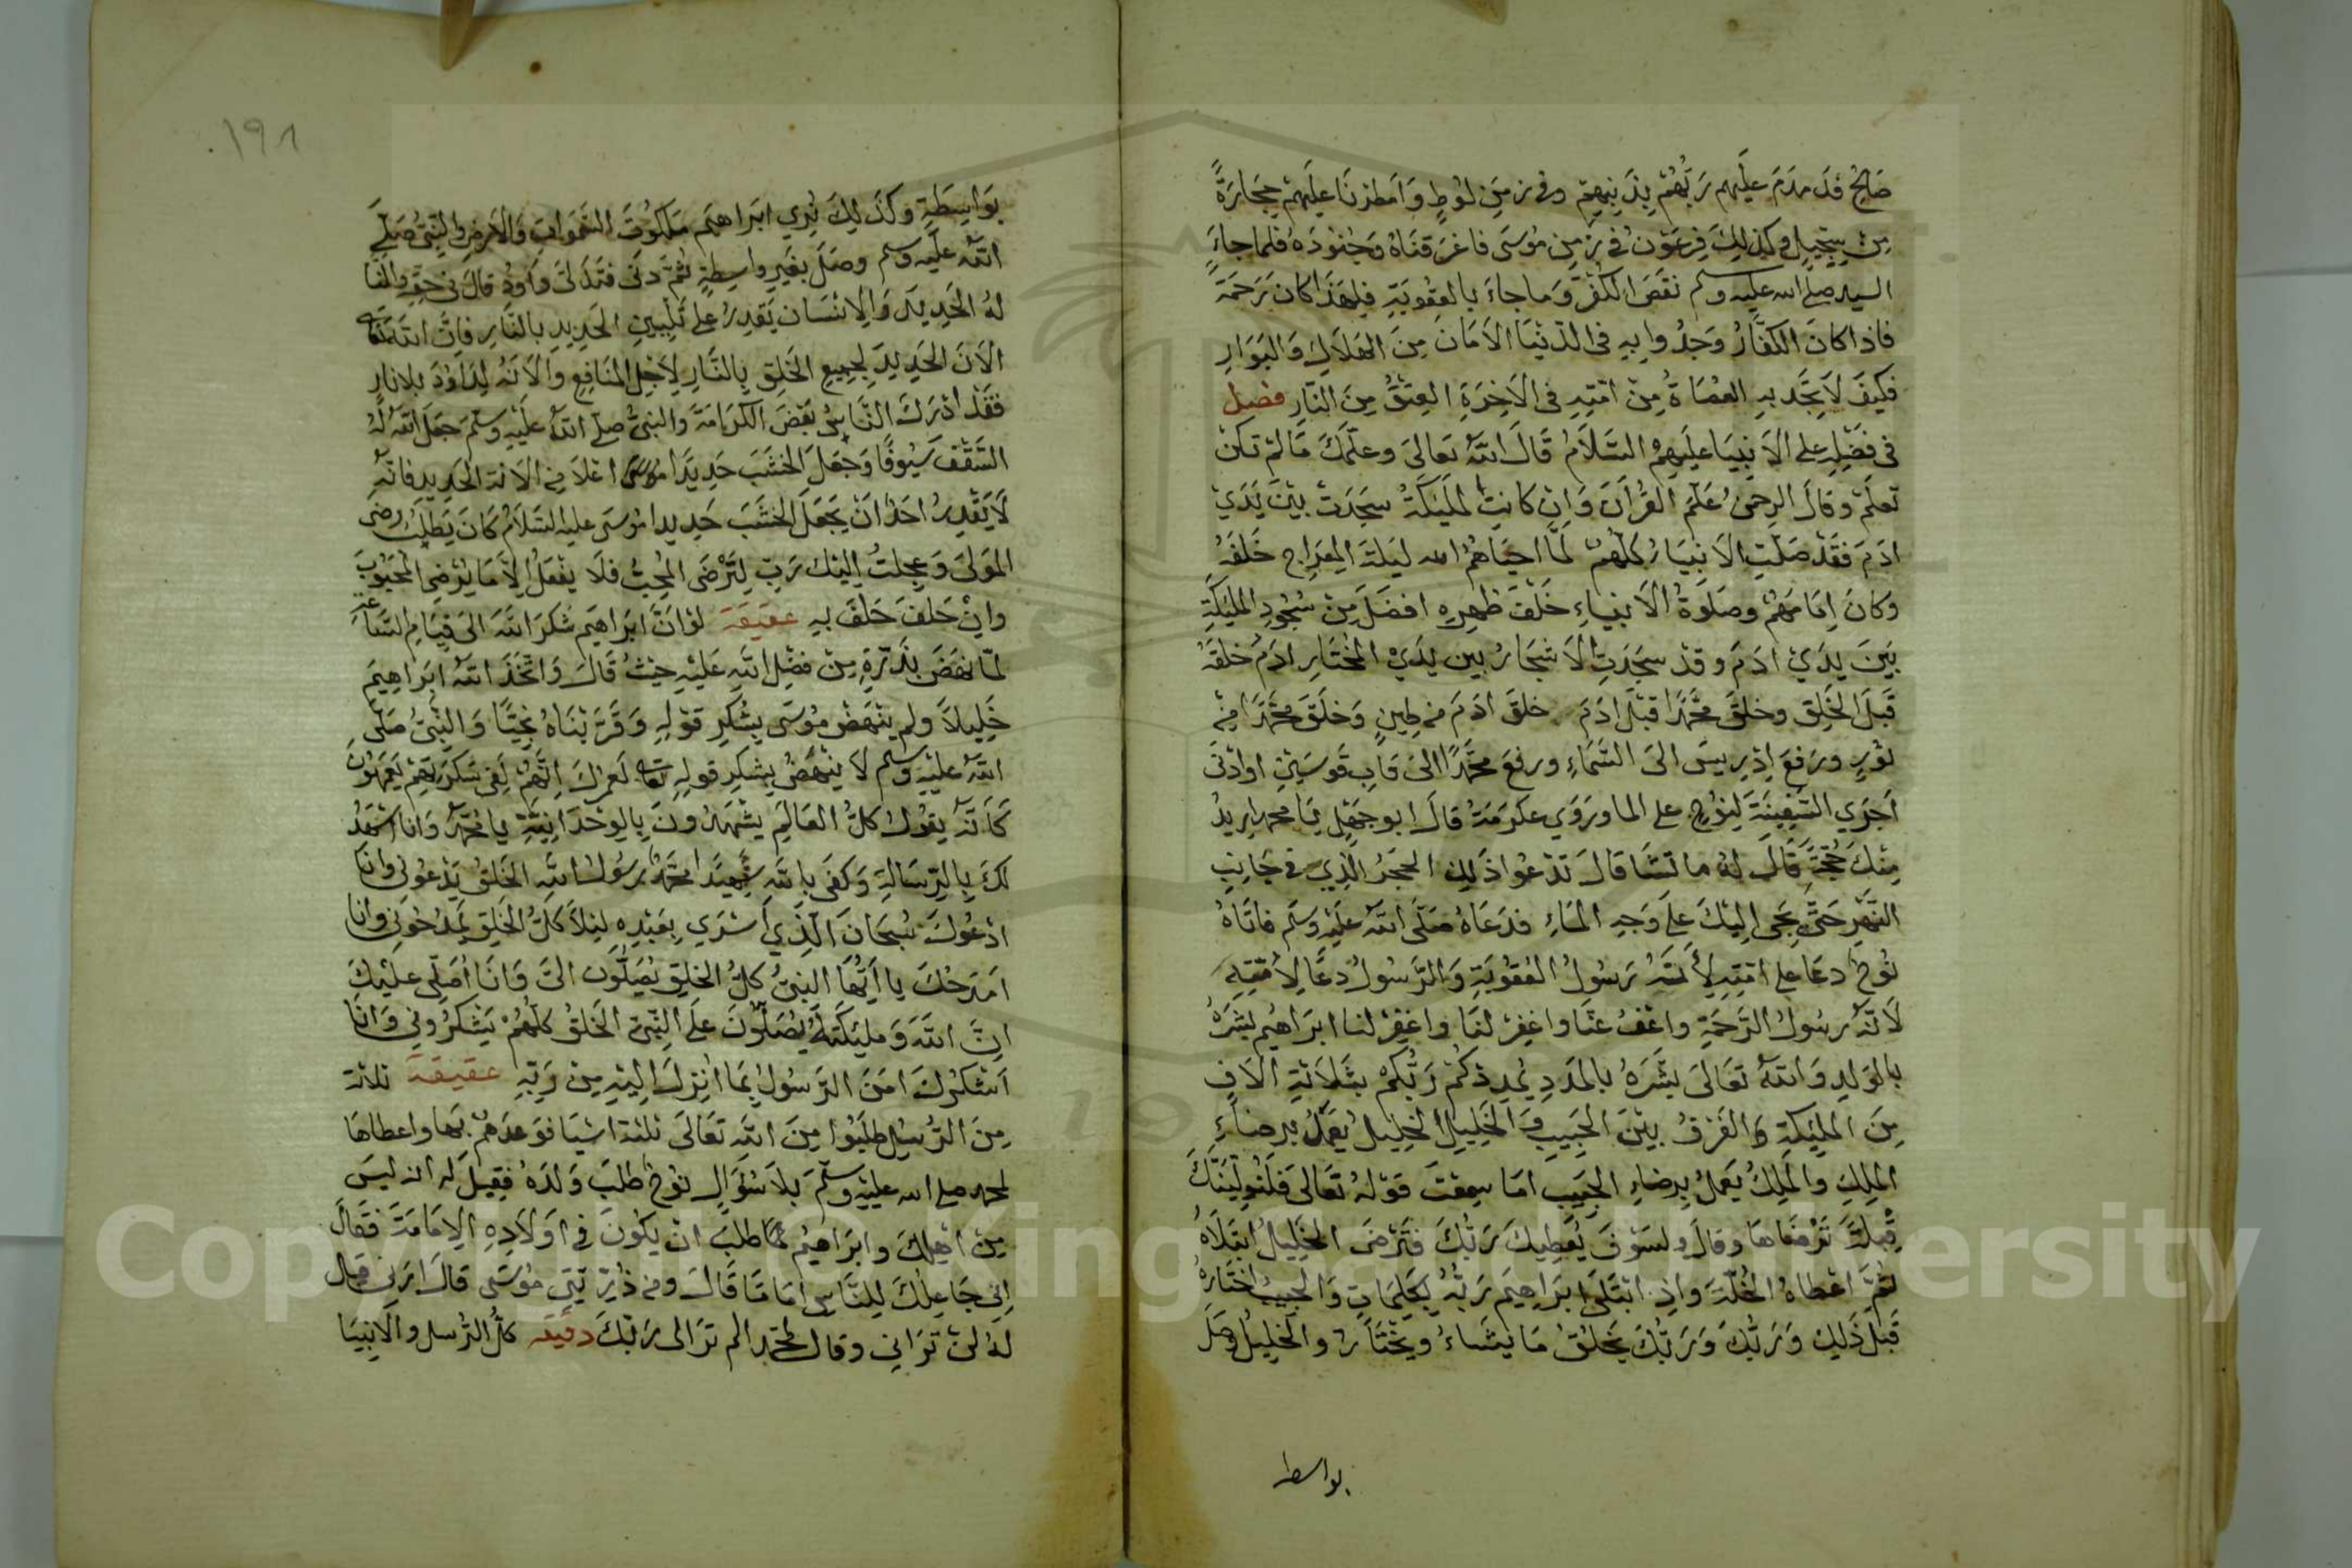 صَالِحٍ فَدَمْدَمَ عَلَيهِم رَبُّهُمْ بِذَنبِهِمْ وفي زمَنِ لوُطٍ وَاَمْطَرْنَا عَلَيهِمْ حِجَارَةً
مِنْ سِجِّيلٍ وكذلِكَ فِرعَوْنُ في زمِن مُوُسَى فاغرَقنَاهُ وَجُنوُدَهُ فلما جاءَ
السيد صلى الله عليه وسلم نقَصَ الكُفْرُ وَما جاءَ بالعقُوبَةِ فلِهَذَا كانَ رَحْمَةً
فاذا كانَ الكفّارُ وَجَدُوا بِهِ في الدّنيَا الاَمَانَ مِنَ الهَلاَكِ وَالبَوَارِ
فكيفَ لاَ تجَدُ بهِ العُصَاةُ مِنْ امّتِهِ في الاَخِرَةِ العِتقُ مِنَ النّارِ فصل
في فَضْلِهِ على الاَنبيَا عليَهِمُ السَّلاَمُ قَالَ اللهُ تعَالىَ وعلّمَكَ مَا لمْ تكنْ
تعلَمْ وقالَ الرحمنُ عَلّمَ القُراَنَ وَاِن كانتِ الملَيكةُ سجَدَتْ بيْنَ يَدَيْ
ادَمَ فَقَدْ صَلّتِ الاَنبيَاءُ كلّهُمْ لَمّا احيَاهُمُ الله ليَلةَ المِعرَاجِ خَلفَهُ
وَكانَ اِمَامَهُمْ وصَلوَةُ الاَنبيَاءِ خَلْفَ ظهرِهِ افضَلُ مِنْ سُجُودِ الملَيكةِ
بَينَ يدَيْ ادَمَ وقدْ سجَدَتِ الاَشجَارُ بين يدَيْ المُختَارِ ادَمُ خلقَهُ
قَبلَ الخَلِق وخلقَ محمّدًا قبْلَ ادَمَ خلقَ ادَمَ من طِينٍ وَخلَقَ محمّدًا مِنْ
نوُرٍ ورَفعَ اِدْرِيسَ الىَ السَّمَاءِ ورفعَ محمّدًا الىَ قابِ قوسَيْنِ اوادْنَى
اَجْرَي السّفِينَةَ لِنوُحٍ على الما ورَوَي عكرَمَةُ قالَ ابوجَهْلٍ يا محمد اريدُ
مِنْكَ حُجّةً قَالَ لهُ ما تشَا قالَ تدْعُوا ذَلِكَ الحجَرُ الّذي في جَانِبِ
النّهَرِ حَتى يجي اليْكَ عَلىَ وَجهِ المَاءِ فدَعَاهُ صَلّى اللهُ عَليْهِ وَسَلم فاتَاهُ
نوُحٌ دعَا على امّتِهِ لأَنّهُ رَسُولُ العُقوُبَةِ وَالرَّسُولُ دَعَا لاُمّتِهِ
لاَنّهُ رسُولُ الرّحمَةِ واعْفُ عنّا واغفِرْ لنَا واغفِرْ لنا ابرَاهيمُ بشّرَهُ
بالوَلدِ وَاللهُ تعَالىَ بشَّرَهُ بالمدَدِ يُمدِدْكُمْ رَبُّكمْ بثَلاَثةِ الاَفٍ
مِنَ الملَيكَةِ وَالفَرْقُ بيْنَ الحَبيبِ وَالخَلِيلِ الخليلُ يعَملُ برِضَاءِ
المِلِكِ والمَلِكُ يَعملُ بِرضاءِ الحبَيبِ امَا سِمعْتَ قوْلهُ تعَالىَ فلَنُولِّيَنَّكَ
قِبْلةً ترْضَاهَا وقالَ ولسَوْفَ يُعطيكَ رَبُّكَ فتَرْضىَ الخَلِيلُ ابتَلاَهُ
ثُمَّ اعْطاهُ الخُلّةَ وَاِذِ ابتَلىَ ابرَاهِيمَ رَبّهُ بِكلِمَاتٍ وَالحبيبُ اختَارَهُ
قَبلَ ذَلِكَ وَرَبُّكَ وَرَبُّكَ يخَلقُ مَا يَشَاءُ ويخْتَارُ والخَلِيلُ وصَلَ
بواسطة
١٩٨
بوَاسِطَةٍ وَكَذلِكَ نُرِي ابَراهيَم مَلَكوُتَ السَّمَواتِ وَالاَرضِ والنّبيُّ صَلىَّ
اللهُ عليَه وسلم وصَلَ بغيَرِ واسِطةٍ ثُمَّ دَنىَ فتَدَلىّ وَداوُدَ قالَ في حقّهِ وَالنّا
لهُ الحَدِيدَ وَالاِنسَان يَقدِرُ على تليِينِ الحَدِيدِ بالنّارِ فاِنّ اللهَ تعَالى
الاَنَ الحَدِيدَ لجَمِيعِ الخلَقِ بالنّارِ لاَجْلِ المنَافِعِ وَالاَنَهُ لِدَاوُدَ بلا نارٍ
فقَدْ ادْرَكَ النّاسُ بَعْضَ الكرَامَةِ وَالنبيُّ صلى اللهُ عليَهِ وسَلّمَ جَعلَ اللهُ لهُ
السَّقفَ سُيوُفًا وَجعَلَ الخشَبَ حَدِيدًا اعلاَ من الانَة الحَديدِ فانّهُ
لاَ يَقْدِرُ احَدٌ انْ يَجعَلَ الخشَبَ حَديدا مُوسَى عليه السّلاَمُ كانَ يَطلُبُ رضى
المَولىَ وَعجِلتُ اليكَ رَبِّ لِتَرْضَى المُحِبُّ فلاَ يفعَلُ اِلاَّ مَا يُرْضِي المحبُوبَ
وانْ حَلفَ حَلفَ بهِ عقيقة لوَانَّ ابرَاهيَم شكَرَ اللهَ الىَ قيَامِ السّاعَة
لمَا نهَضَ بذَرّةٍ مِنْ فضْلِ اللهِ عَليْهِ حَيثُ قَالَ وَاتّخَذَ اللهُ ابرَاهِيمَ
خَلِيلاً ولم ينْهَضْ موُسَى بشُكرِ قوْلِهِ وَقَرّبنَاهُ نجِيًّا وَالنّبيُ صَلّى
اللهُ عليْهِ وَسلم لاَ ينهَضُ بشكرِ قولِهِ تعالى لَعمرُكَ اِنّهُمْ لفِي سَكرَتهِمْ يَعمَهوُنَ
كَاَنّهُ يقوُلُ كلُّ العَالَمِ يشْهَدُونَ بالوَحْدَانِيّةِ يا محمّدُ وَانا اشهَدُ
لكَ بالرّسَالةِ وَكفىَ باللهِ شَهِيدًا محمّدٌ رسُولُ اللهِ الخَلقُ يَدْعُونِي وَانا
ادْعُوكَ سُبحَانَ الّذِي أَسْرَي بِعَبْدِهِ لَيْلاً كلُّ الخَلقِ يَمدَحُونِي وَانا
امَدحُكَ يا ايُّهَا النبيُّ كلُّ الخلقِ يُصَلّوُن اليَّ وَانَا أُصَلّي عَليْكَ
انّ اللهَ وَمليَكَتهُ يُصَلُّونَ علىَ النّبيّ الخَلقُ كلّهُمْ يَشكرُوني وَانَا
اَشْكُرُكَ امَنَ الرّسُولُ بمَا انزِلَ اِليْهِ مِنْ رَبّهِ عقيقة ثلاثة
مِنَ الرُّسُلِ طلَبُوا مِنَ اللهِ تعَالىَ ثلثة اشيَا فوَعدَهُمْ بهَا واعطاهَا
لمحمد صلى الله عليْهِ وَسَلّمَ بلاَ سُؤالٍ نوُحٌ طلَبَ وَلدَهُ فقِيلَ له انه ليسَ
مِنْ اهلِكَ وابرَاهيُم لمّا طلبَ انْ يكوُنَ في اوَلادِهِ الاِمَامَةَ فقَالَ
اِني جَاعِلُكَ لِلنّاسِ امَامًا قَالَ ومن ذُرّيّتيِ موُسَى قالَ ارَنيِ قال
لهُ لنْ ترَاني وقالَ لمحمّد الم ترَ الى رَبّكَ دقيقه كلُّ الرُّسل والاَنبيَا
Copyright © King Saud University